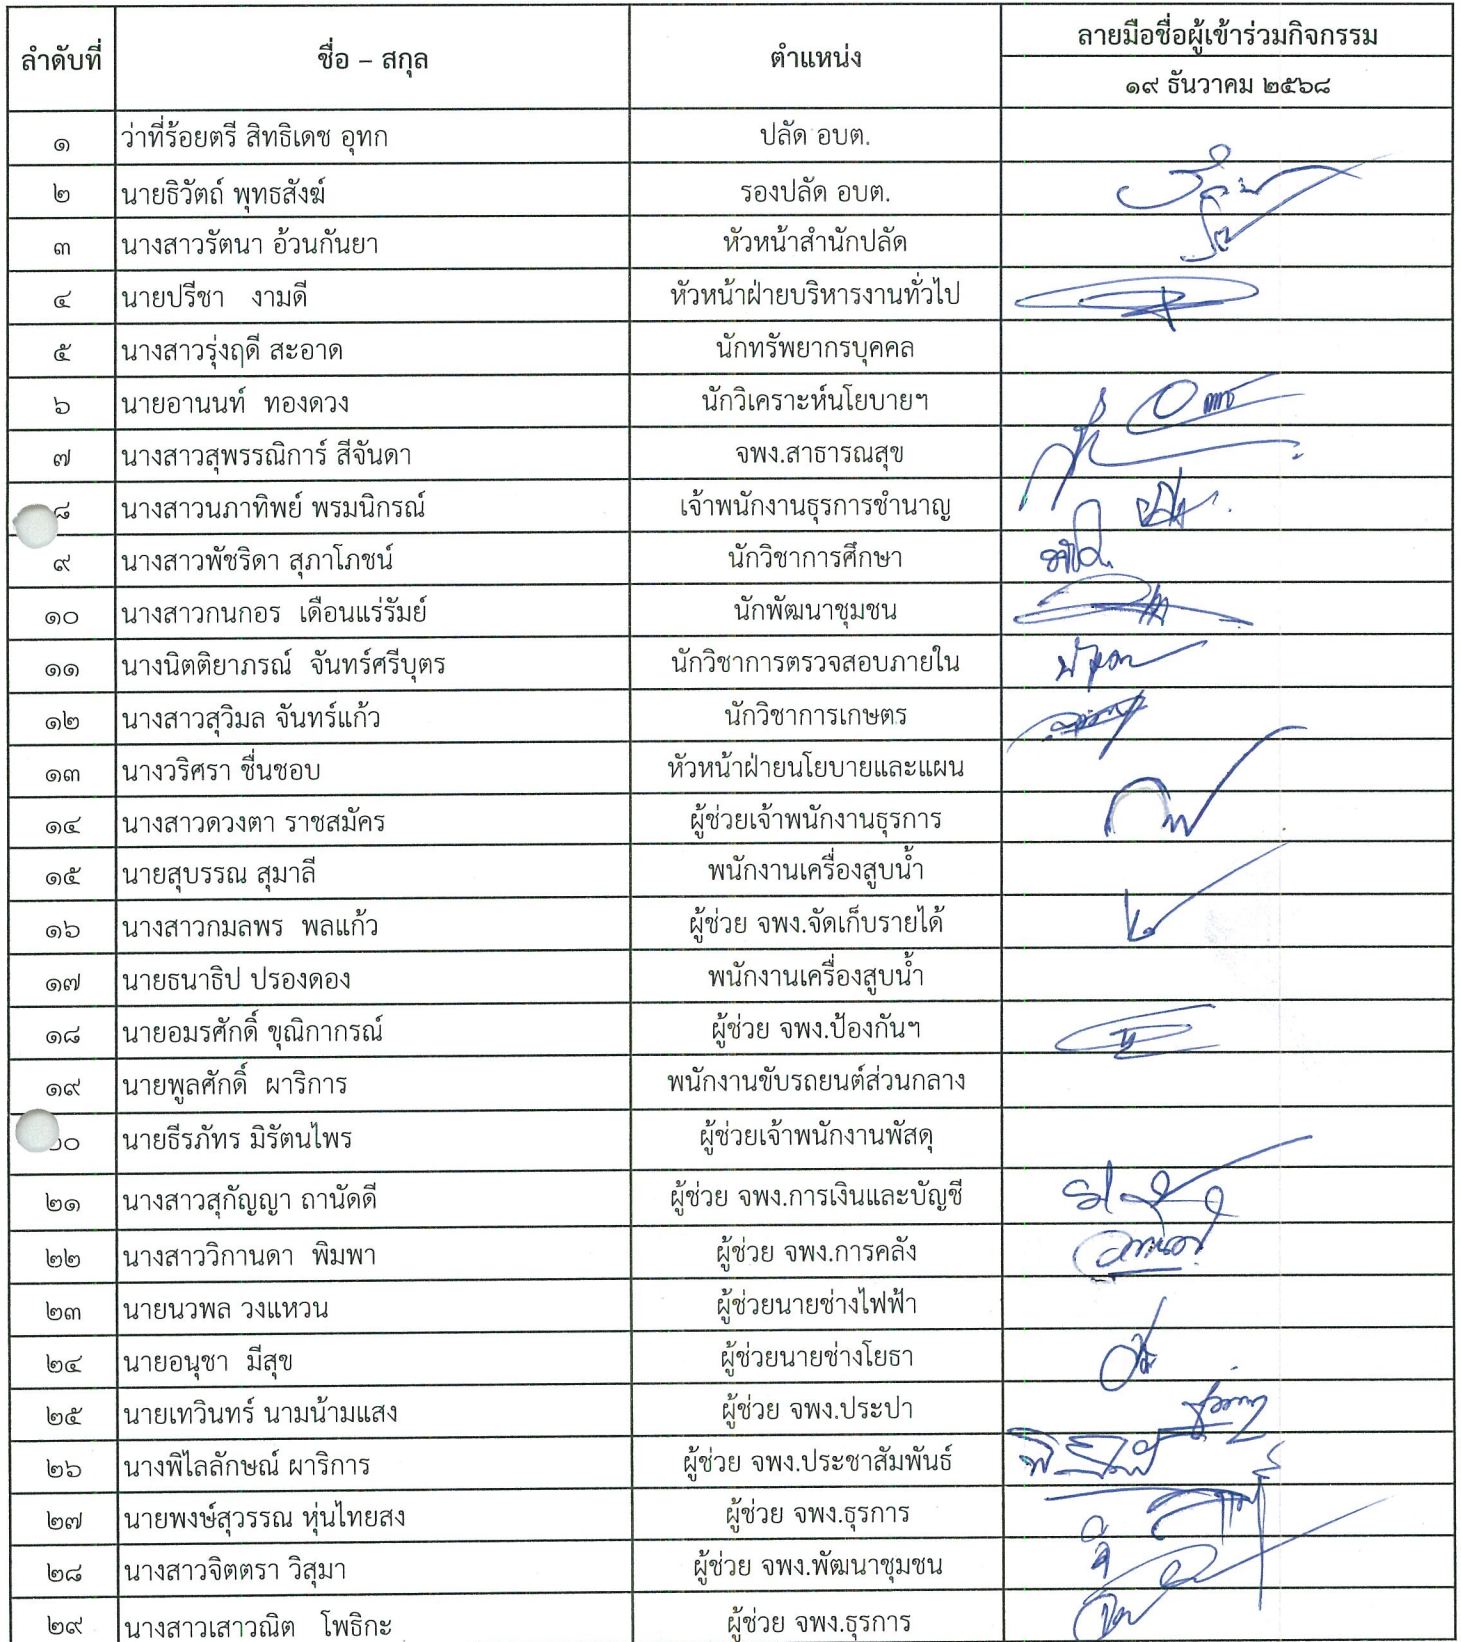 ลำดับที่ ชื่อ – สกุล ตำแหน่ง ลายมือชื่อผู้เข้าร่วมกิจกรรม
๑๙ ธันวาคม ๒๕๖๘
๑ ว่าที่ร้อยตรี สิทธิเดช อุทก ปลัด อบต.
๒ นายธิวัตถ์ พุทธสังฆ์ รองปลัด อบต.
๓ นางสาวรัตนา อ้วนกันยา หัวหน้าสำนักปลัด
๔ นายปรีชา งามดี หัวหน้าฝ่ายบริหารงานทั่วไป
๕ นางสาวรุ่งฤดี สะอาด นักทรัพยากรบุคคล
๖ นายอานนท์ ทองดวง นักวิเคราะห์นโยบายฯ
๗ นางสาวสุพรรณิการ์ สีจันดา จพง.สาธารณสุข
๘ นางสาวนภาทิพย์ พรมนิกรณ์ เจ้าพนักงานธุรการชำนาญ
๙ นางสาวพัชริดา สุภาโภชน์ นักวิชาการศึกษา
๑๐ นางสาวกนกอร เดือนแร่รัมย์ นักพัฒนาชุมชน
๑๑ นางนิตติยาภรณ์ จันทร์ศรีบุตร นักวิชาการตรวจสอบภายใน
๑๒ นางสาวสุวิมล จันทร์แก้ว นักวิชาการเกษตร
๑๓ นางวริศรา ชื่นชอบ หัวหน้าฝ่ายนโยบายและแผน
๑๔ นางสาวดวงตา ราชสมัคร ผู้ช่วยเจ้าพนักงานธุรการ
๑๕ นายสุบรรณ สุมาลี พนักงานเครื่องสูบน้ำ
๑๖ นางสาวกมลพร พลแก้ว ผู้ช่วย จพง.จัดเก็บรายได้
๑๗ นายธนาธิป ปรองดอง พนักงานเครื่องสูบน้ำ
๑๘ นายอมรศักดิ์ ขุณิกากรณ์ ผู้ช่วย จพง.ป้องกันฯ
๑๙ นายพูลศักดิ์ ผาริการ พนักงานขับรถยนต์ส่วนกลาง
๒๐ นายธีรภัทร มิรัตนไพร ผู้ช่วยเจ้าพนักงานพัสดุ
๒๑ นางสาวสุกัญญา ถานัดดี ผู้ช่วย จพง.การเงินและบัญชี
๒๒ นางสาววิกานดา พิมพา ผู้ช่วย จพง.การคลัง
๒๓ นายนวพล วงแหวน ผู้ช่วยนายช่างไฟฟ้า
๒๔ นายอนุชา มีสุข ผู้ช่วยนายช่างโยธา
๒๕ นายเทวินทร์ นามน้ามแสง ผู้ช่วย จพง.ประปา
๒๖ นางพิไลลักษณ์ ผาริการ ผู้ช่วย จพง.ประชาสัมพันธ์
๒๗ นายพงษ์สุวรรณ หุ่นไทยสง ผู้ช่วย จพง.ธุรการ
๒๘ นางสาวจิตตรา วิสุมา ผู้ช่วย จพง.พัฒนาชุมชน
๒๙ นางสาวเสาวณิต โพธิกะ ผู้ช่วย จพง.ธุรการ